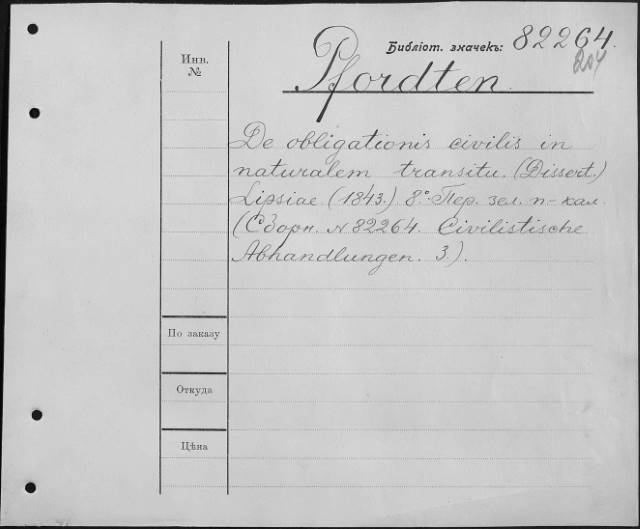 Библіот. значекъ: 82264.
204
Инв. №
Pfordten.
De obligationis civilis in
naturalem transitu. (Dissert.)
Lipsiae (1843.) 8°. Пер. зел. п-кал.
(Сборн. № 82264. Civilistische
Abhandlungen. 3.).
По заказу
Откуда
Цѣна